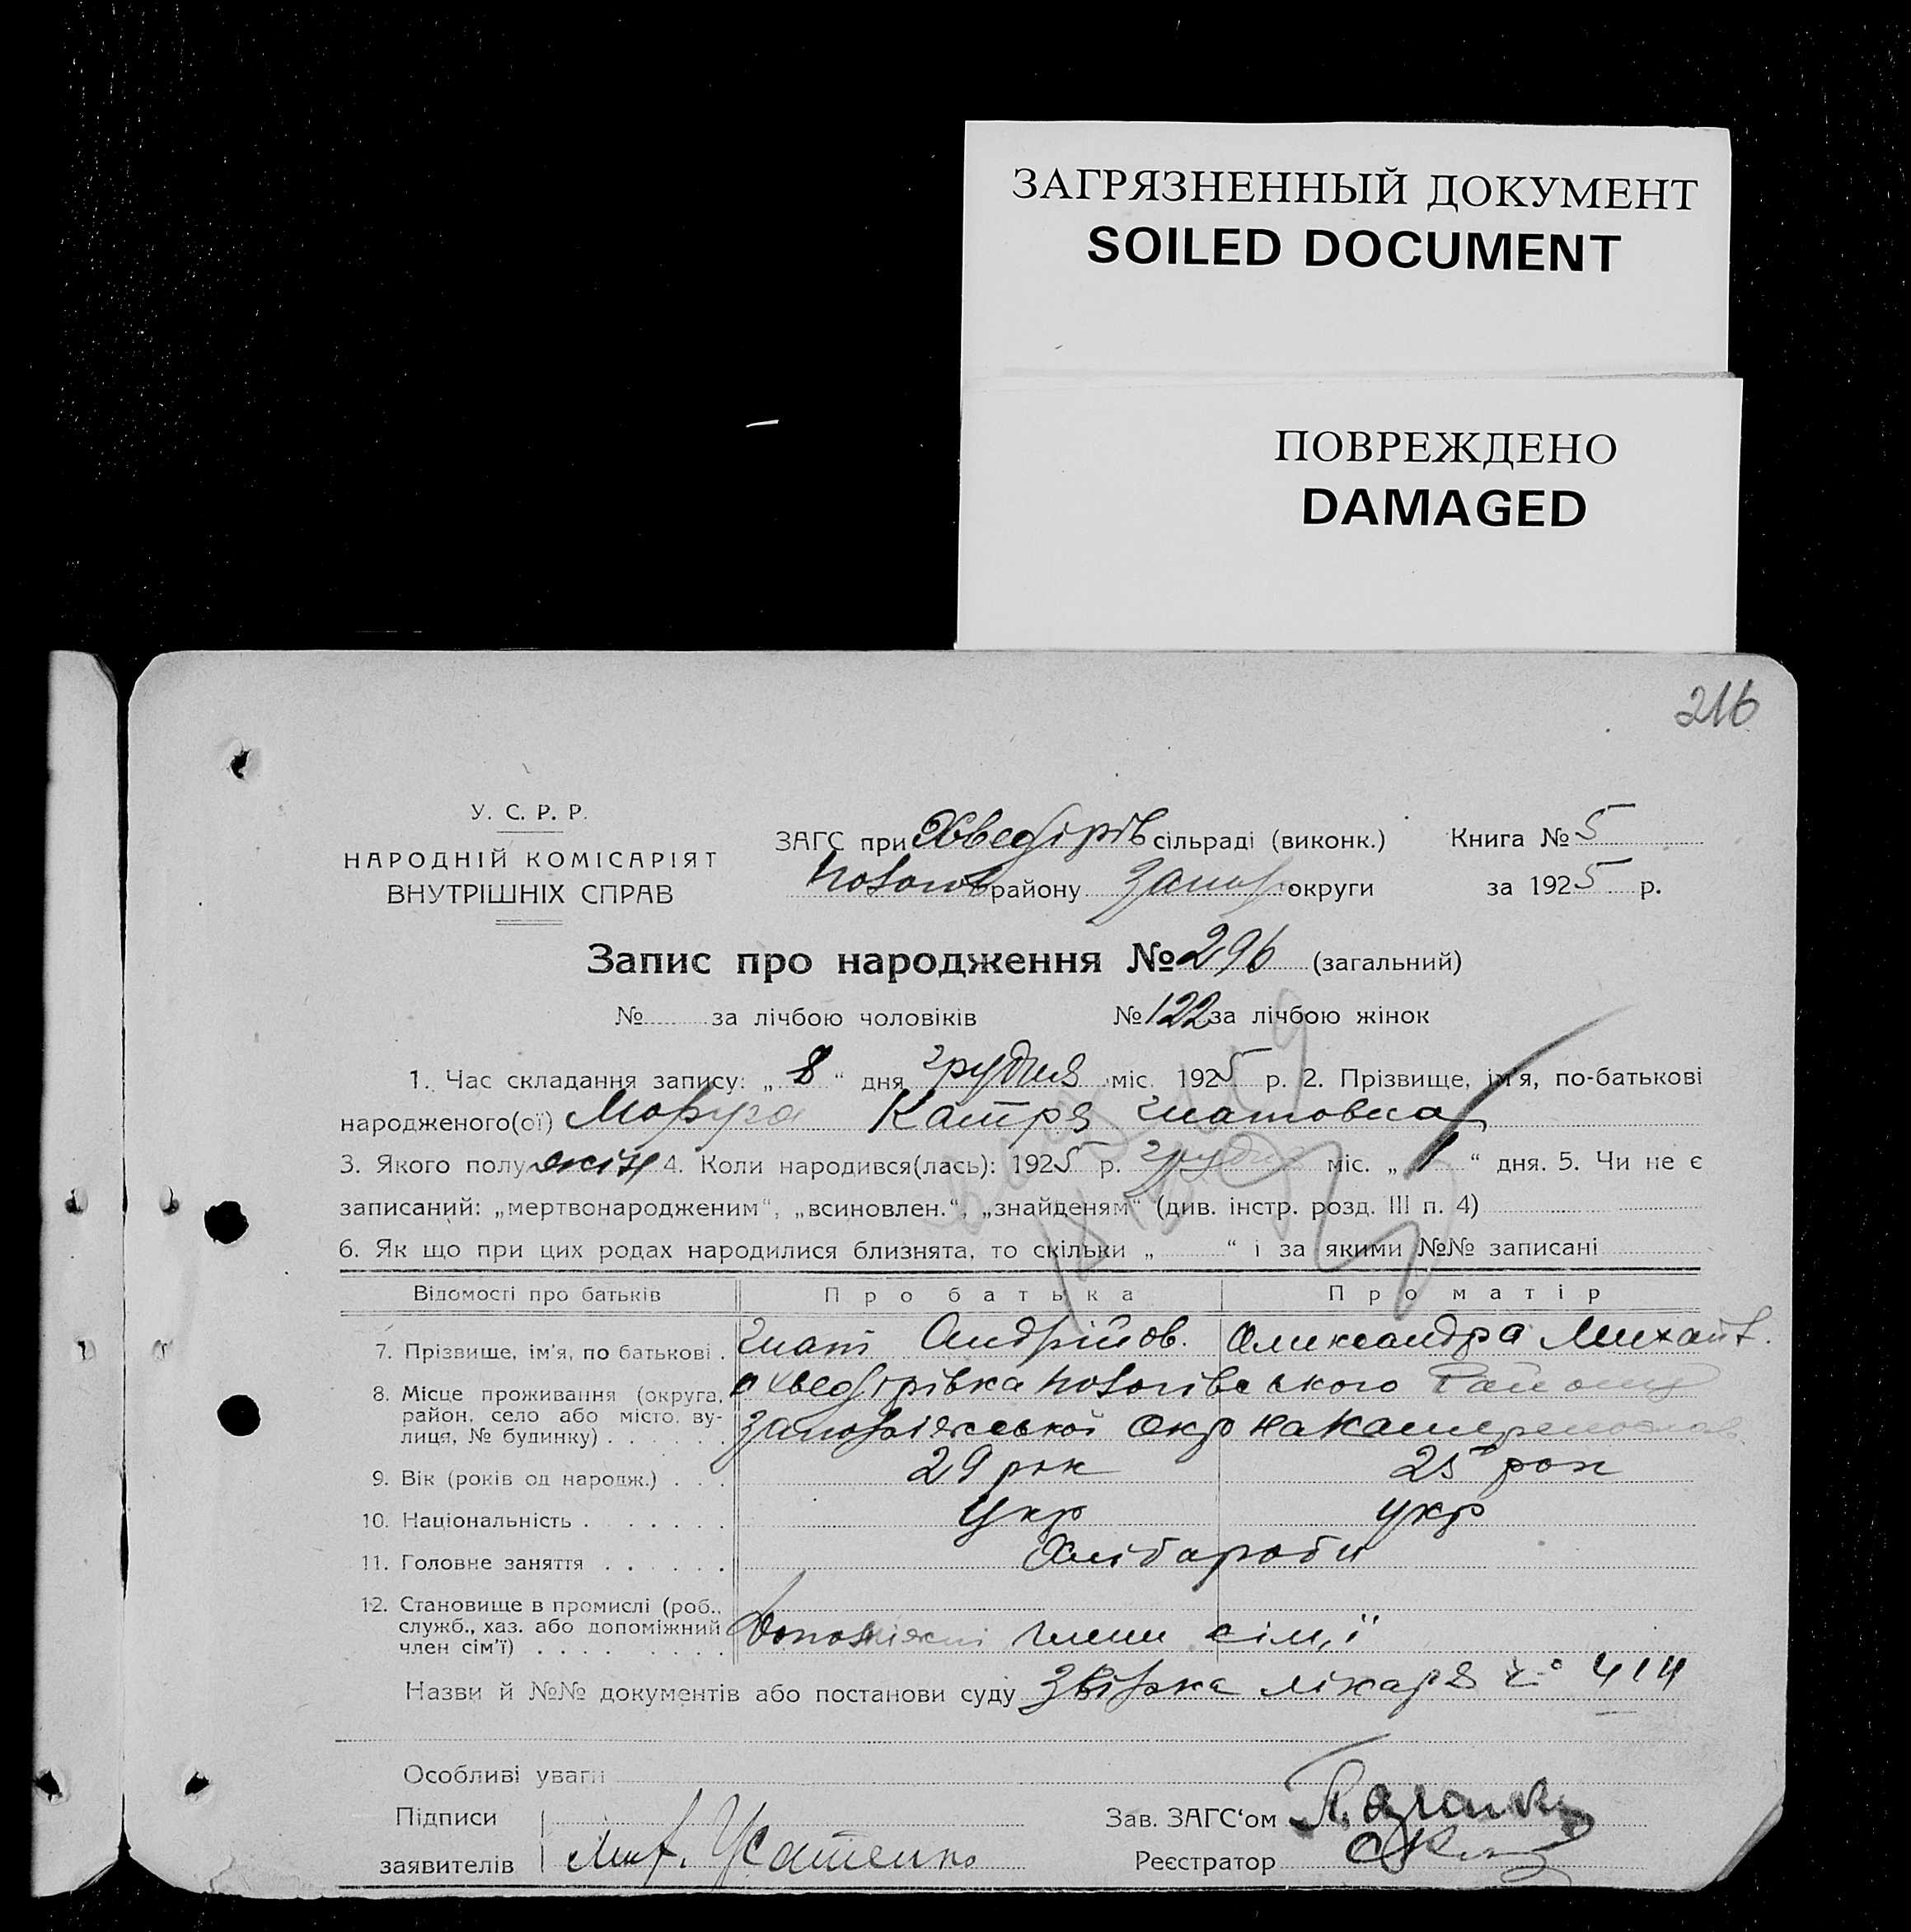 ЗАГРЯЗНЕННЫЙ ДОКУМЕНТ
SOILED DOCUMENT
ПОВРЕЖДЕНО
DAMAGED
216
У. С. Р. Р.
НАРОДНІЙ КОМІСАРІЯТ
ВНУТРІШНІХ СПРАВ
ЗАГС при Хведорів сільраді (виконк.) Книга № 5
району Запор округи за 1925 р.
Запис про народження № 296 (загальний)
№ за лічбою чоловіків № 122 за лічбою жінок
1. Час складання запису: „ 8 “ дня грудня міс. 1925 р. 2. Прізвище, ім'я, по-батькові
народженого(ої) Катря Гнатовна
3. Якого полу жін 4. Коли народився(лась): 1925 р. грудня міс. „ 1 “ дня. 5. Чи не є
записаний: „мертвонародженим“, „всиновлен.“, „знайденям“ (див. інстр. розд. III п. 4)
6. Як що при цих родах народилися близнята, то скільки „ “ і за якими №№ записані
Відомості про батьків Про батька Про матір
7. Прізвище, ім'я, по батькові . Гнат Андрійов. Олександра Михайл.
8. Місце проживання (округа,
район, село або місто, вулиця, № будинку) . . . . . .
Запоріжської Окр на
9. Вік (років од народж.) . . . 29 рок 25 рок
10. Національність . . . . . . . Укр укр
11. Головне заняття . . . . . . Хлібороби
12. Становище в промислі (роб.,
служб., хаз. або допоміжний
член сім'ї) . . . . . . . . Допоміжні члени сім,ї
Назви й №№ документів або постанови суду Звірка лікаря № 414
Особливі уваги
Підписи
заявителів Усатенко
Зав. ЗАГС‘ом
Реєстратор